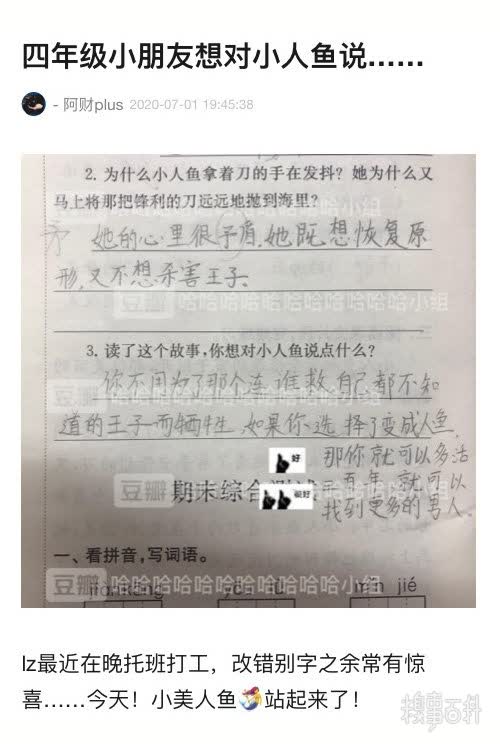 四年级小朋友想对小人鱼说……
- 阿财plus 2020-07-01 19:45:38
2. 为什么小人鱼拿着刀的手在发抖？她为什么又
马上将那把锋利的刀远远地抛到海里？
矛
她的心里很予盾,她既想恢复原
形,又不想杀害王子、
豆瓣 哈哈哈哈哈哈哈哈哈哈哈哈小组
3. 读了这个故事,你想对小人鱼说点什么？
你不用为了那个连谁救自己都不知
道的王子而牺牲,如果你选择了变成人鱼,
那你就可以多活
一百年,就可以
找到更多的男人.
好
很好
期末综合测试
一、看拼音,写词语。
豆瓣 哈哈哈哈哈哈哈哈哈哈哈哈小组
jiàn kāng
mǐn jié
lz最近在晚托班打工，改错别字之余常有惊
喜……今天！小美人鱼站起来了！
糗事百科